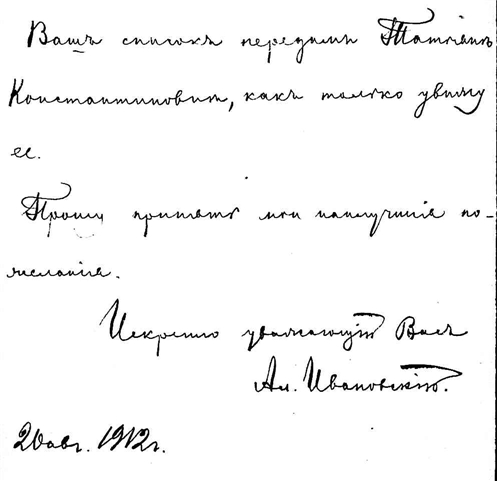 Вашъ списокъ передамъ Татьянѣ
Константиновнѣ, какъ только увижу
ее.
Прошу принять мои наилучшія по-
желанія.
Искренно уважающій Васъ
Ал. Ивановскій.
20 авг. 1912 г.